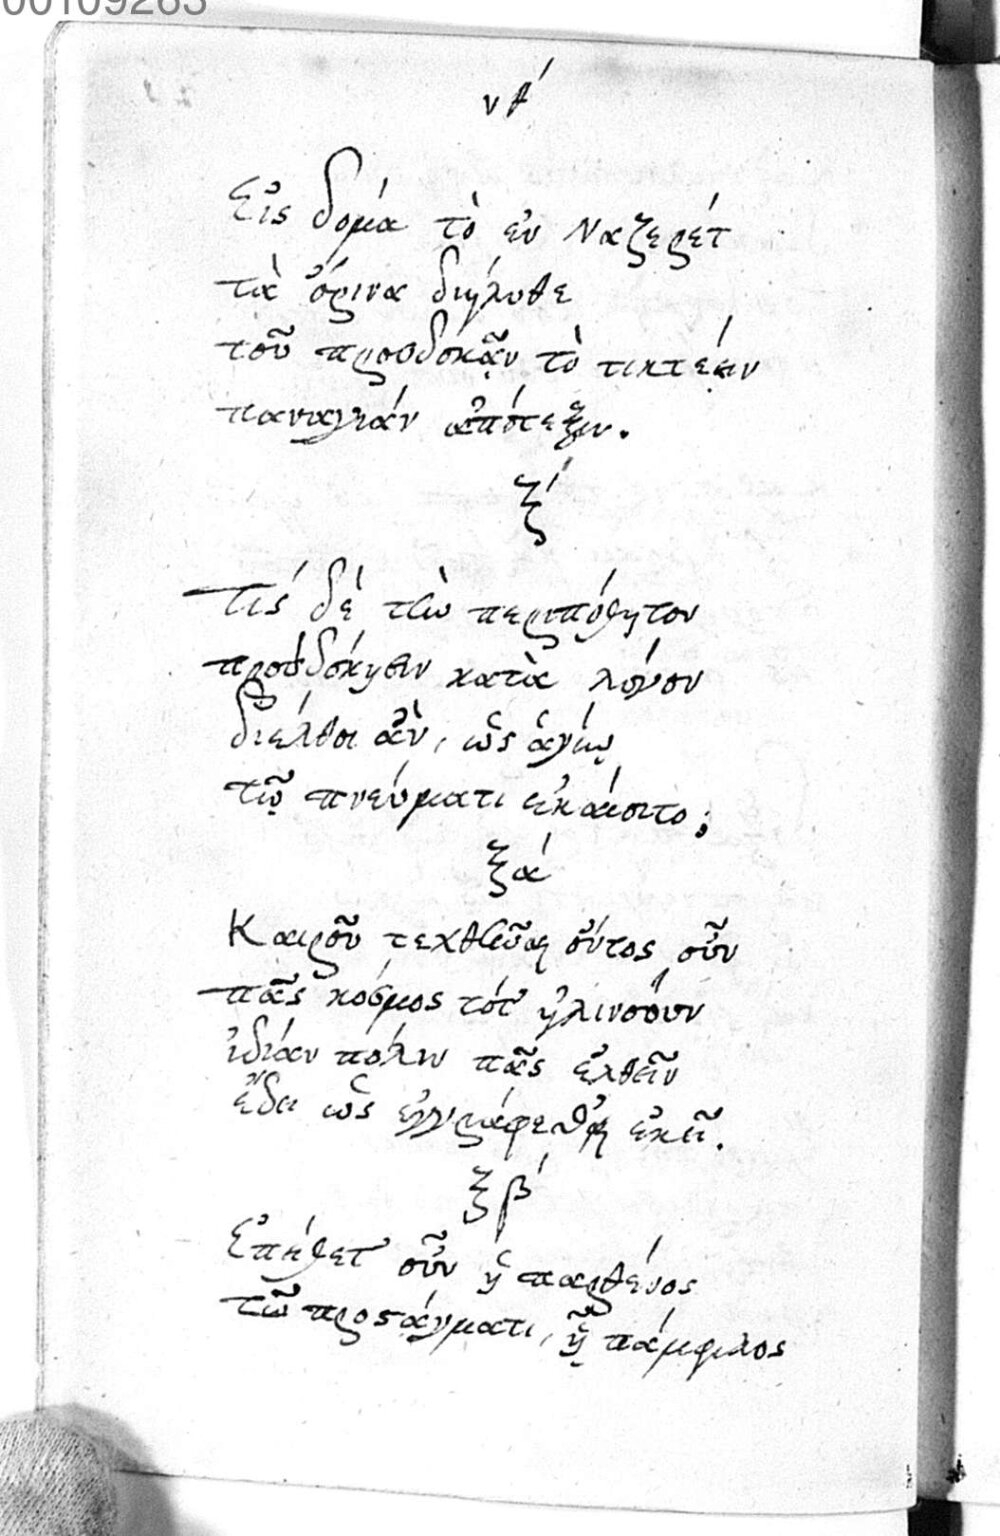 00109283
νθ́
Εἰς δομά τὸ ἐν Ναζερέτ
τὰ ὄρινα διήλυθε
τοῦ προσδοκᾷν τὸ τικτέειν
παναγίαν ἀπότεξιν.
ξ́
Τίς δέ τὴν περιπόθητον
προσδόκησιν κατὰ λόγον
διέλθοι ἂν, ὡς ἁγίῳ
τῷ πνεύματι εἰκάσιτο;
ξά
Καιροῦ τεχθῆναι ὄντος οὖν
πᾶς κόσμος τότ' ἡλίνσουν
ἰδίαν πόλιν πᾶς ἐλθεῖν
ἔδει ὡς ἐγγράφεσθαι ἐκεῖ.
ξβ́
Ἐπήθετ' οὖν ἡ παρθένος
τῷ προςάγματι, ᾗ πάμφιλος